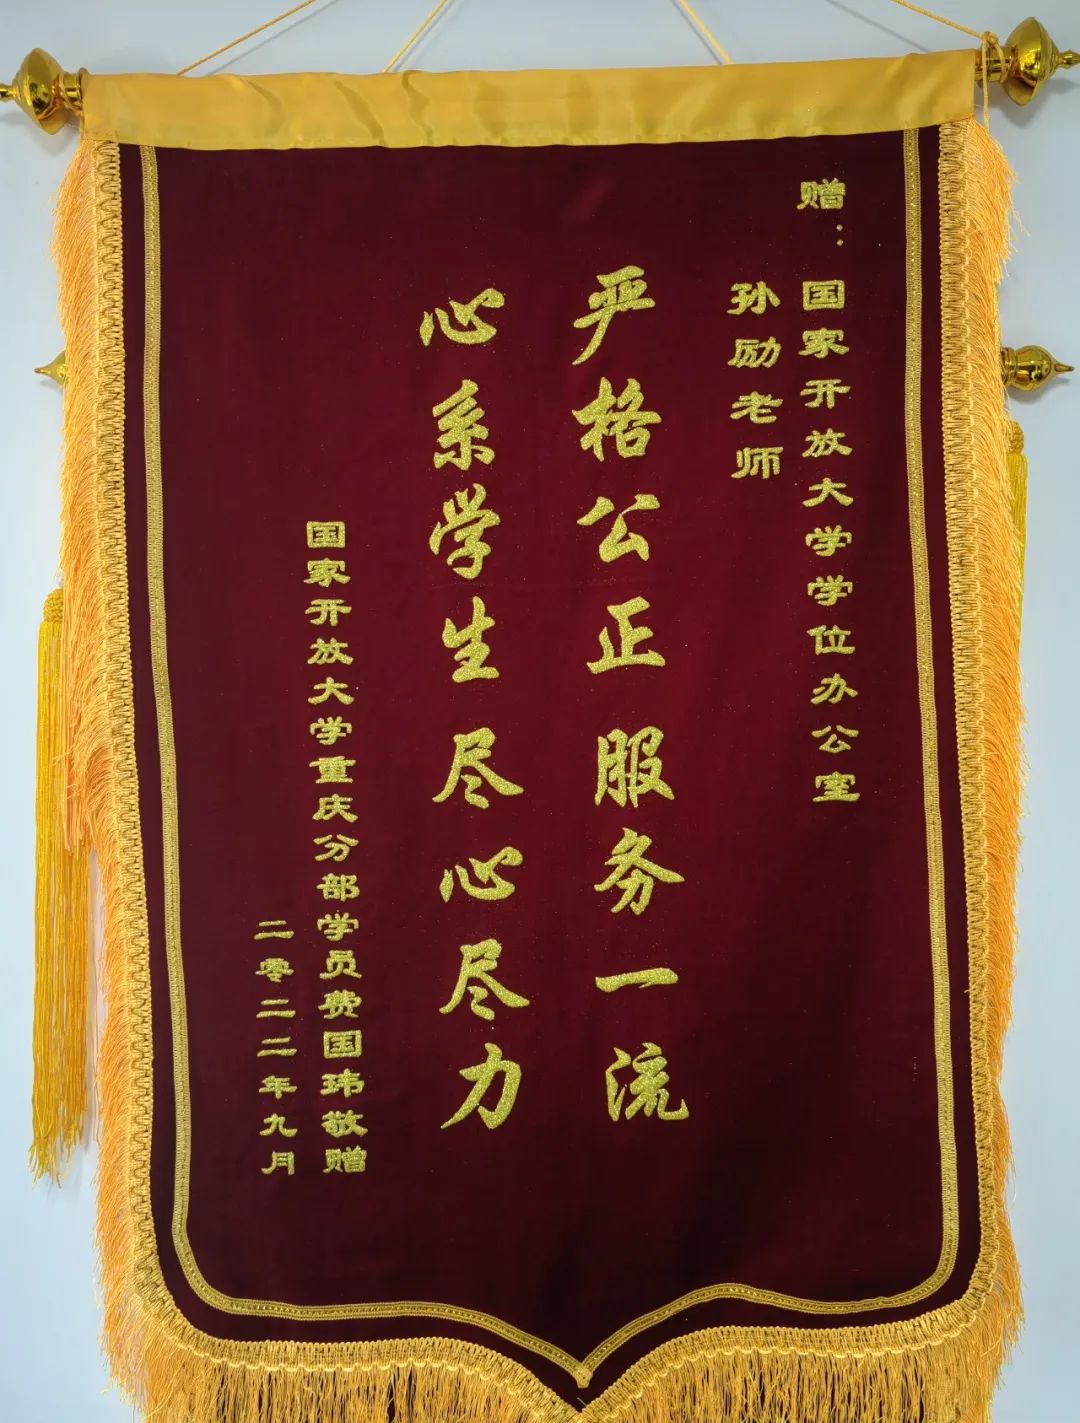 赠：国家开放大学学位办公室
孙励老师
严格公正服务一流
心系学生尽心尽力
国家开放大学重庆分部学员费国玮敬赠
二零二二年九月